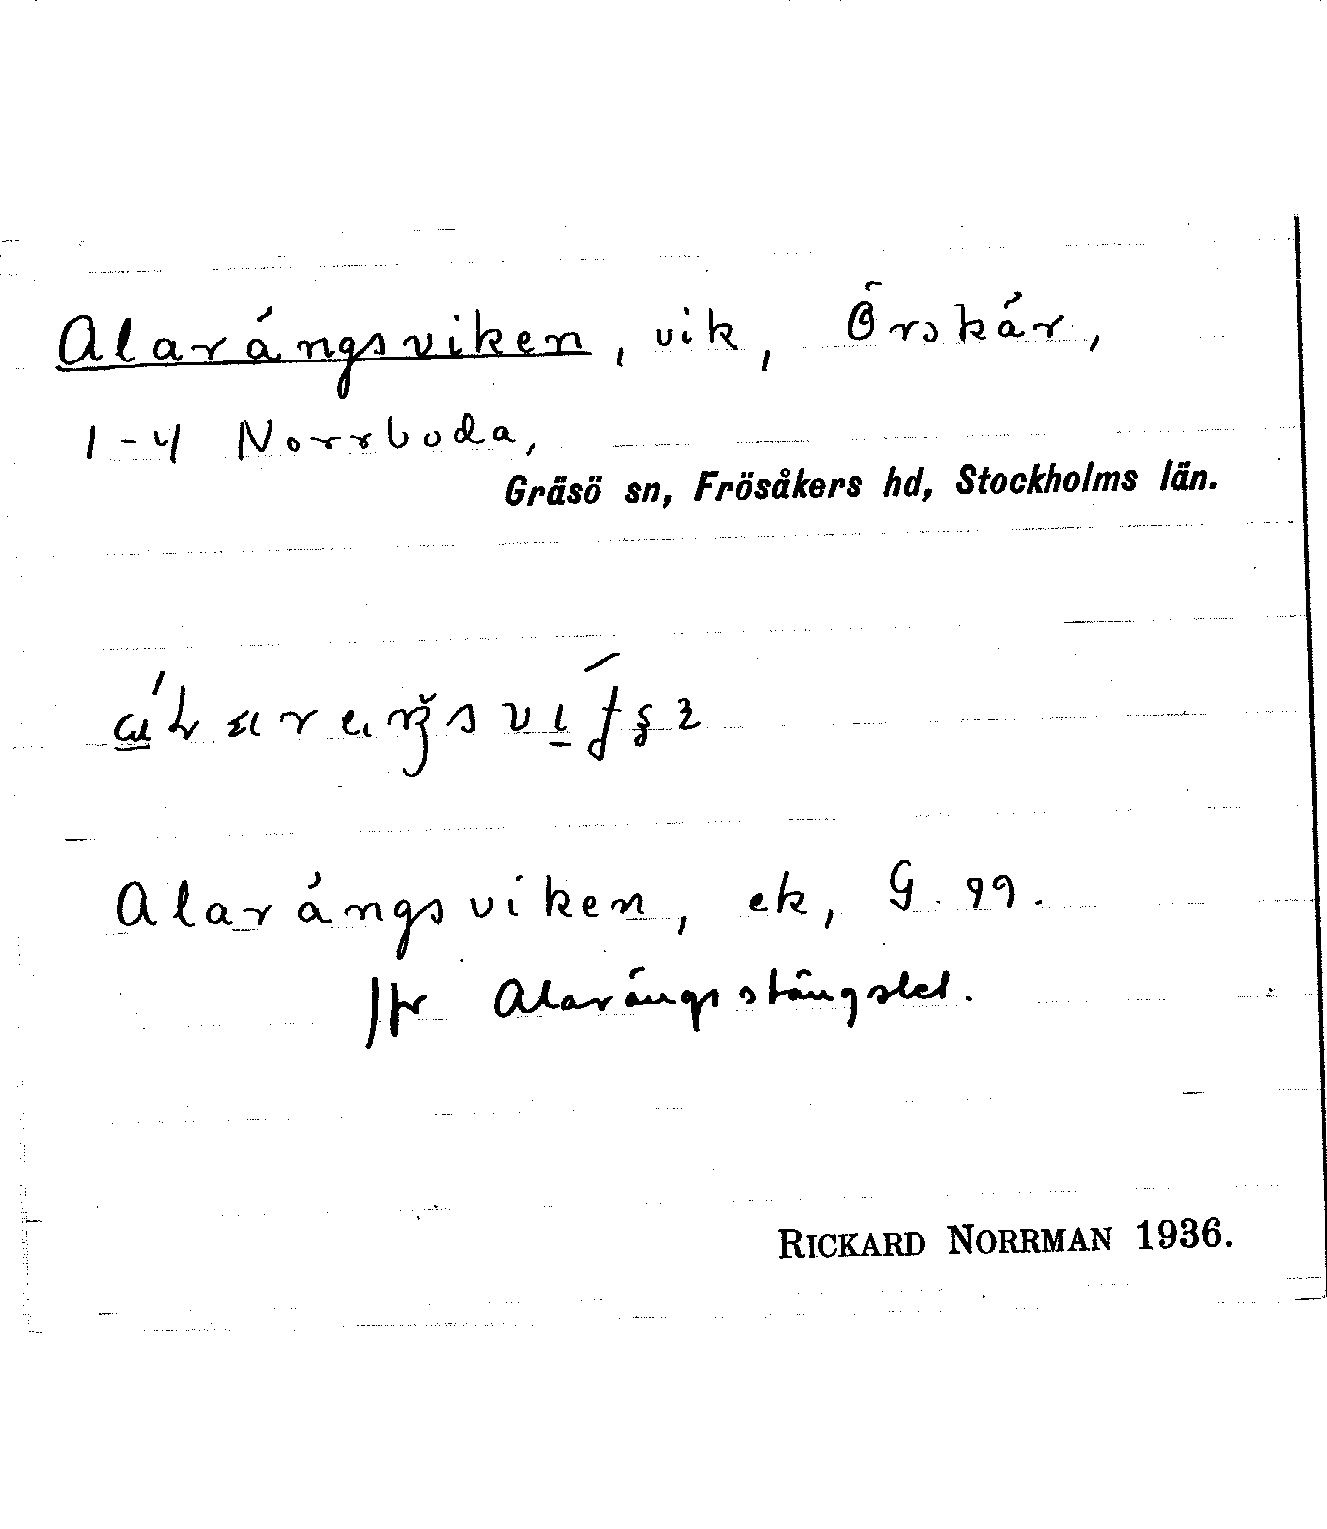 Alarängsviken, vik, Örskär,
1-4 Norrboda,
Gräsö sn, Frösåkers hd, Stockholms län.
Alarängsviken, ek, G. 99.
Jfr Alarängsstängslet.
RICKARD NORRMAN 1936.